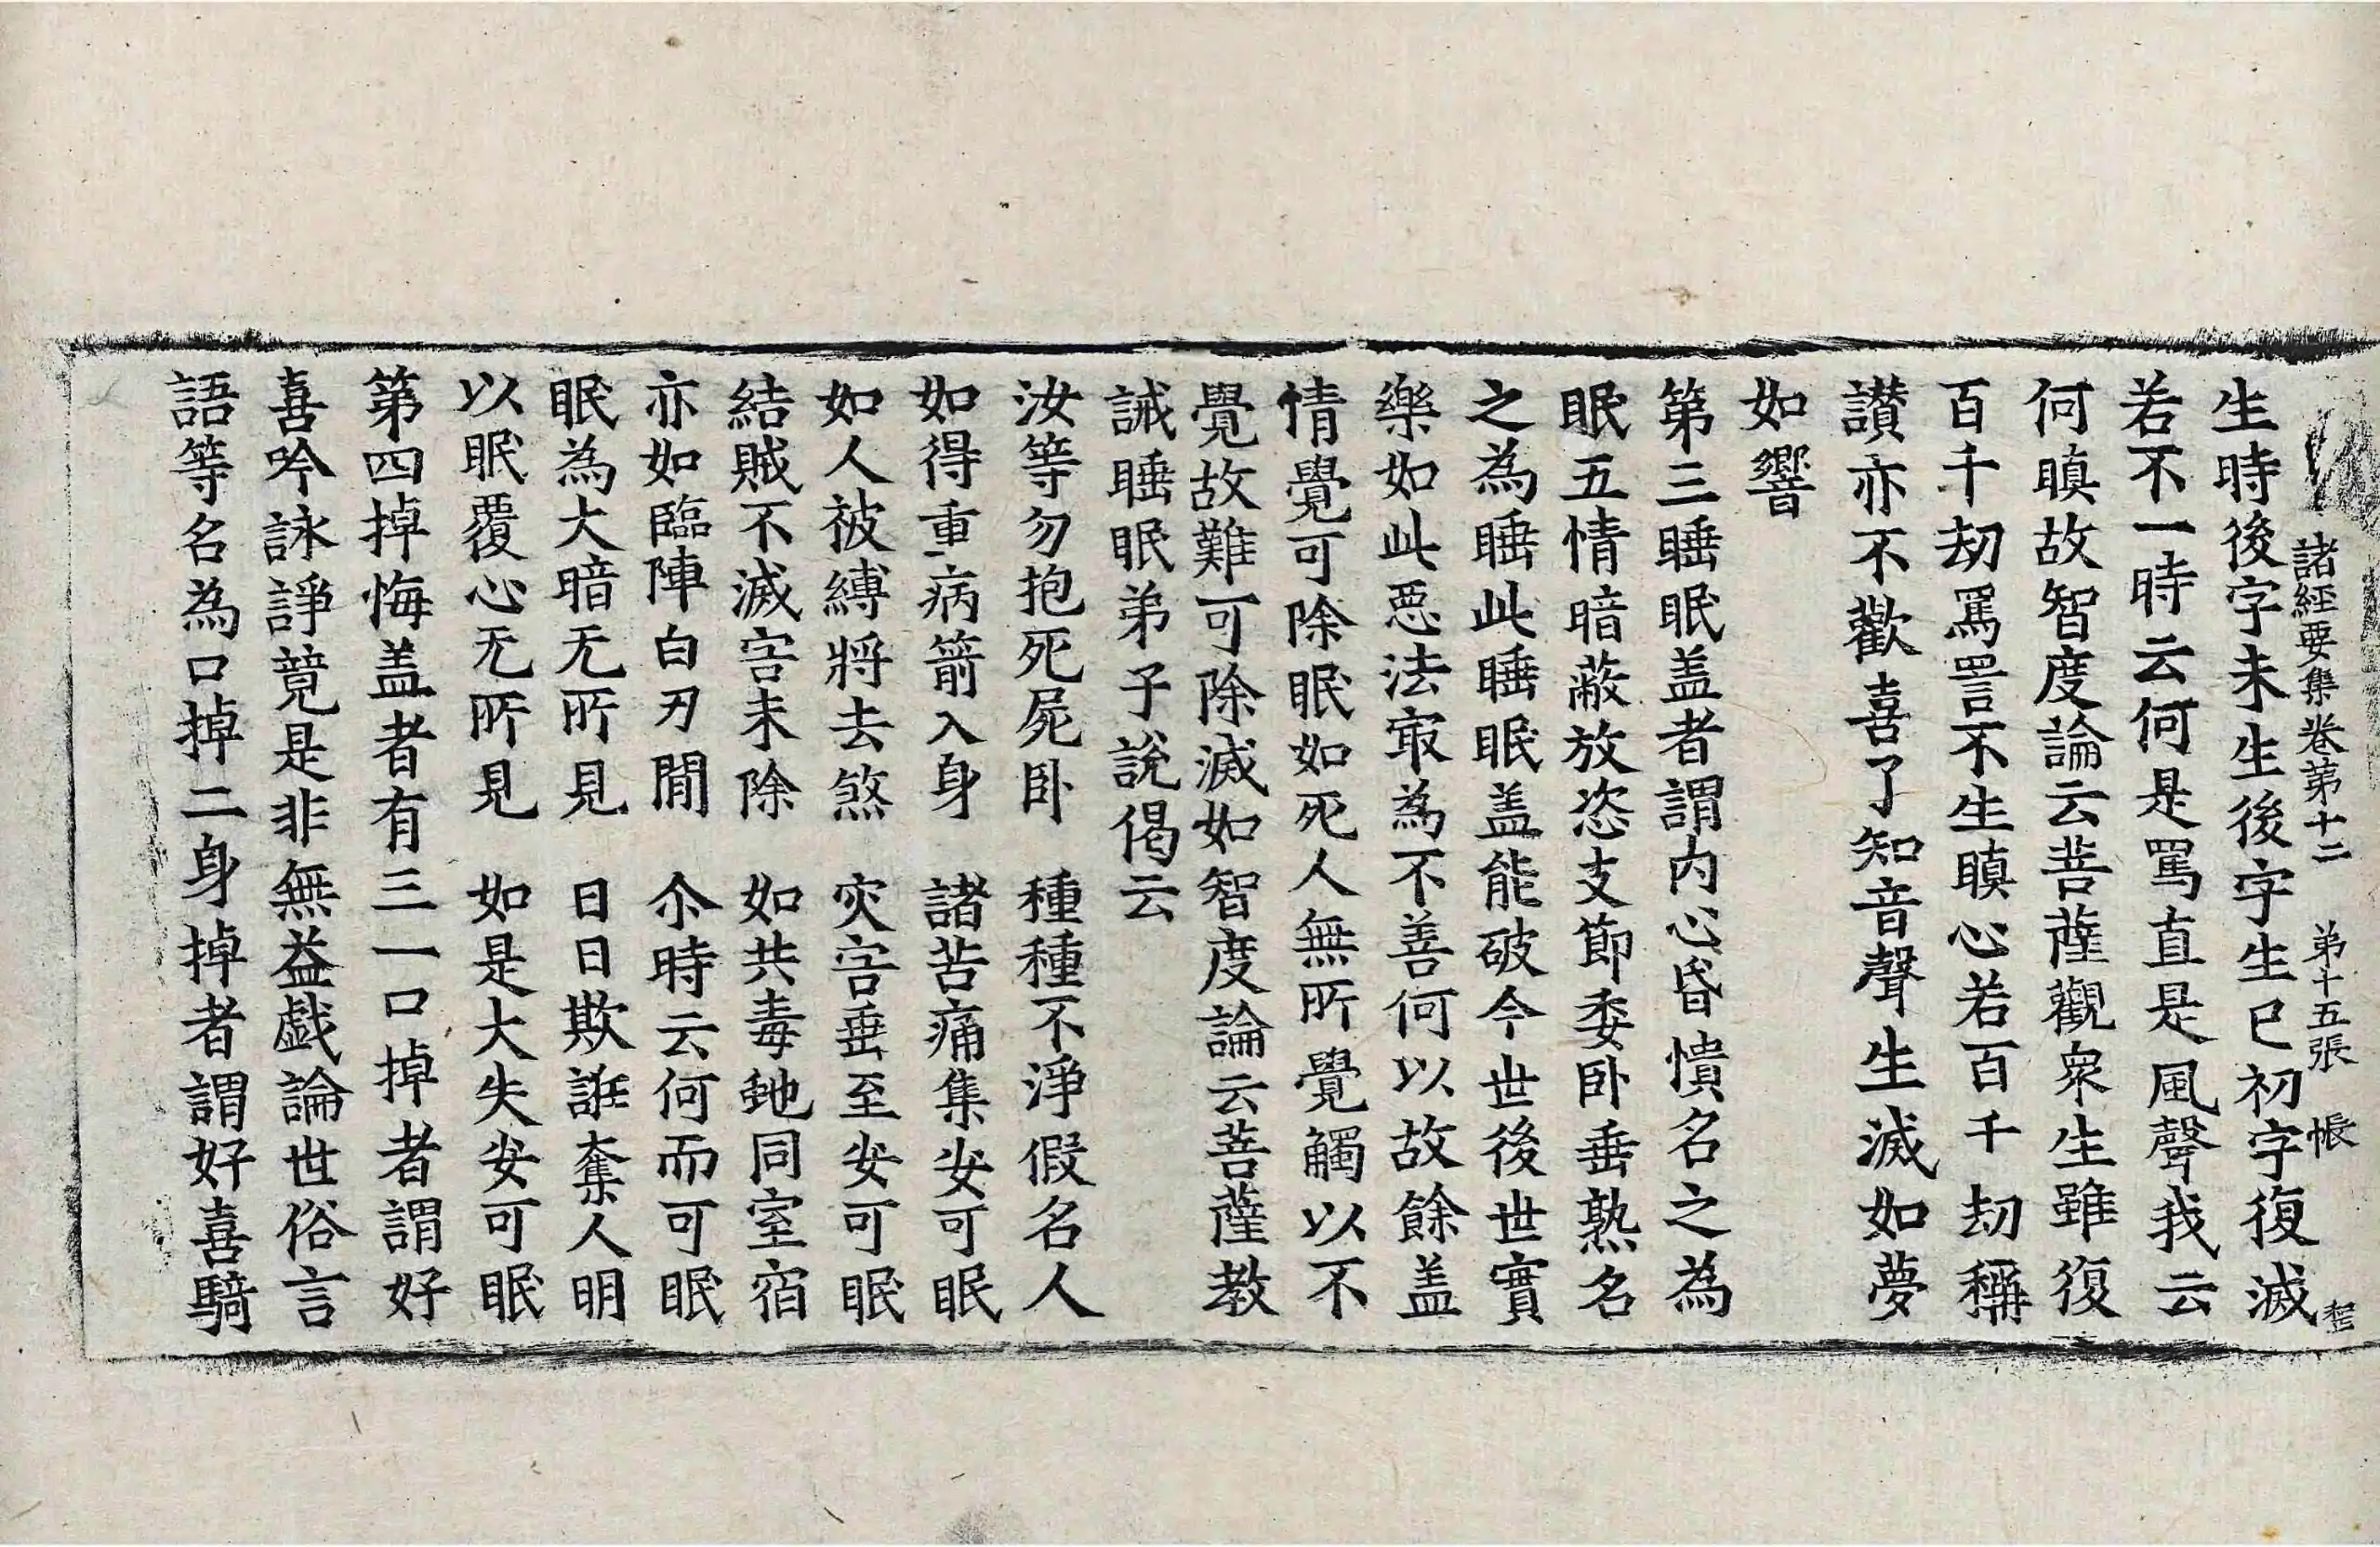 諸經要集卷第十二 第十五張 帳
生時後字未生後字生已初字復滅
若不一時云何是罵直是風聲我云
何瞋故智度論云菩薩觀衆生雖復
百千劫罵詈不生瞋心若百千劫稱
讃亦不歡喜了知音聲生滅如夢
如響
第三睡眠盖者謂內心昏憒名之為
眠五情暗蔽放恣支節委卧垂熟名
之為睡此睡眠盖能破今世後世實
樂如此惡法冣為不善何以故餘盖
情覺可除眠如死人無所覺觸以不
覺故難可除滅如智度論云菩薩教
誡睡眠弟子說偈云
汝等勿抱死屍卧 種種不淨假名人
如得重病箭入身 諸苦痛集安可眠
如人被縛將去煞 灾害垂至安可眠
結賊不滅害未除 如共毒虵同室宿
亦如臨陣白刃閒 尒時云何而可眠
眠為大暗无所見 日日欺誑奪人明
以眠覆心无所見 如是大失安可眠
第四掉悔盖者有三一口掉者謂好
喜吟詠諍競是非無益戱論世俗言
語等名為口掉二身掉者謂好喜騎